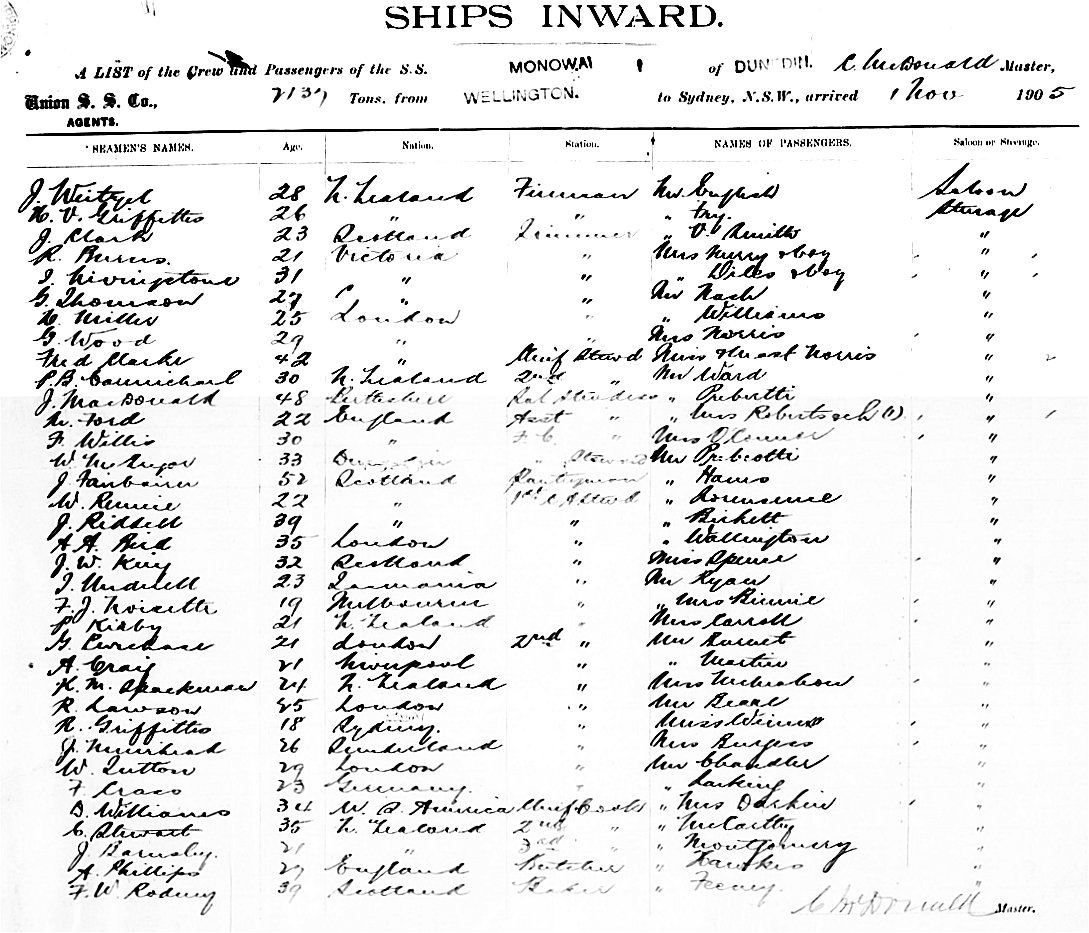 SHIPS INWARD.
A LIST of the Crew and Passengers of the S.S. MONOWAI of DUNEDIN. C. McDonald Master,
Union S. S. Co., 2137 Tons, from WELLINGTON. to Sydney, N.S.W., arrived 1 Nov 1905
AGENTS.
SEAMEN'S NAMES. Age. Nation. Station. NAMES OF PASSENGERS. Saloon or Steerage.
J. Weitzel 28 N. Zealand Fireman Mr English Saloon
H. V. Griffiths 26 " " " Fry. Steerage
J. Clark 23 Scotland Trimmer " V. Smith "
R. Burns. 21 Victoria " Mrs Murry & boy "
J. Livingstone 31 " " " Diles & boy "
G. Thomson 27 " " Mr Nash "
H. Miller 25 London " " Williams "
G. Wood 29 " " Mrs Norris "
Fred Clarke 42 " Chief Stewd Miss & Mast Norris "
P. B. Carmichael 30 N. Zealand 2nd " Mr Ward "
J. MacDonald 48 Sal Stewdess " "
M. Ford 22 England Asst " " Mrs Roberts & ch (1) "
F. Willis 30 " F. C. " Mrs O'Connor "
W. McGregor 33 " Steward Mr "
J. Fairbairn 52 Scotland Pantryman " Haws "
W. Rennie 22 " 1st C A Stewd " "
J. Riddell 39 " " " Birkett "
A. A. Bird 35 London " " Wallington "
J. W. King 32 Scotland " Miss Spence "
J. Underell 23 Tasmania " Mr Ryan "
F. J. Noisette 19 Melbourne " " Mrs Binnie "
P. Kirby 21 N. Zealand " Mrs Carroll "
G. Purchase 21 London 2nd " Mr "
A. Craig 21 Liverpool " " Martin "
K. M. Spackman 24 N. Zealand " Mrs McMahon "
R. Lawson 25 London " Mr Beale "
R. Griffiths 18 Sydney. " Miss "
J. Muirhead 26 Sunderland " Mrs Burgess "
W. Sutton 29 London " Mr Chandler "
F. Crass 23 Germany. " " Larking "
D. Williams 34 W. S. America Chief Cook " Mrs Darkin "
C. Stewart 35 N. Zealand 2nd " " McCarthy "
J. Barnsby. 21 " 3rd " " Montgomery "
A. Phillips 27 England Butcher " Hawkes "
F. W. Rodney 39 Scotland Baker " Feeney. "
C McDonald Master.